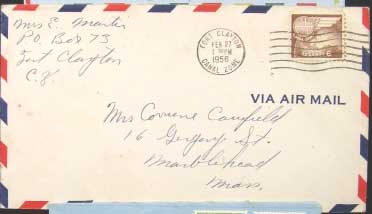 Mrs E. Marter
P.O. Box 73
Fort Clayton
C.Z.
FORT CLAYTON
FEB 27
PM
1956
CANAL ZONE
VIA AIR MAIL
Mrs Corrinne Caulfield
16 Gregory St.
Marblehead
Mass.